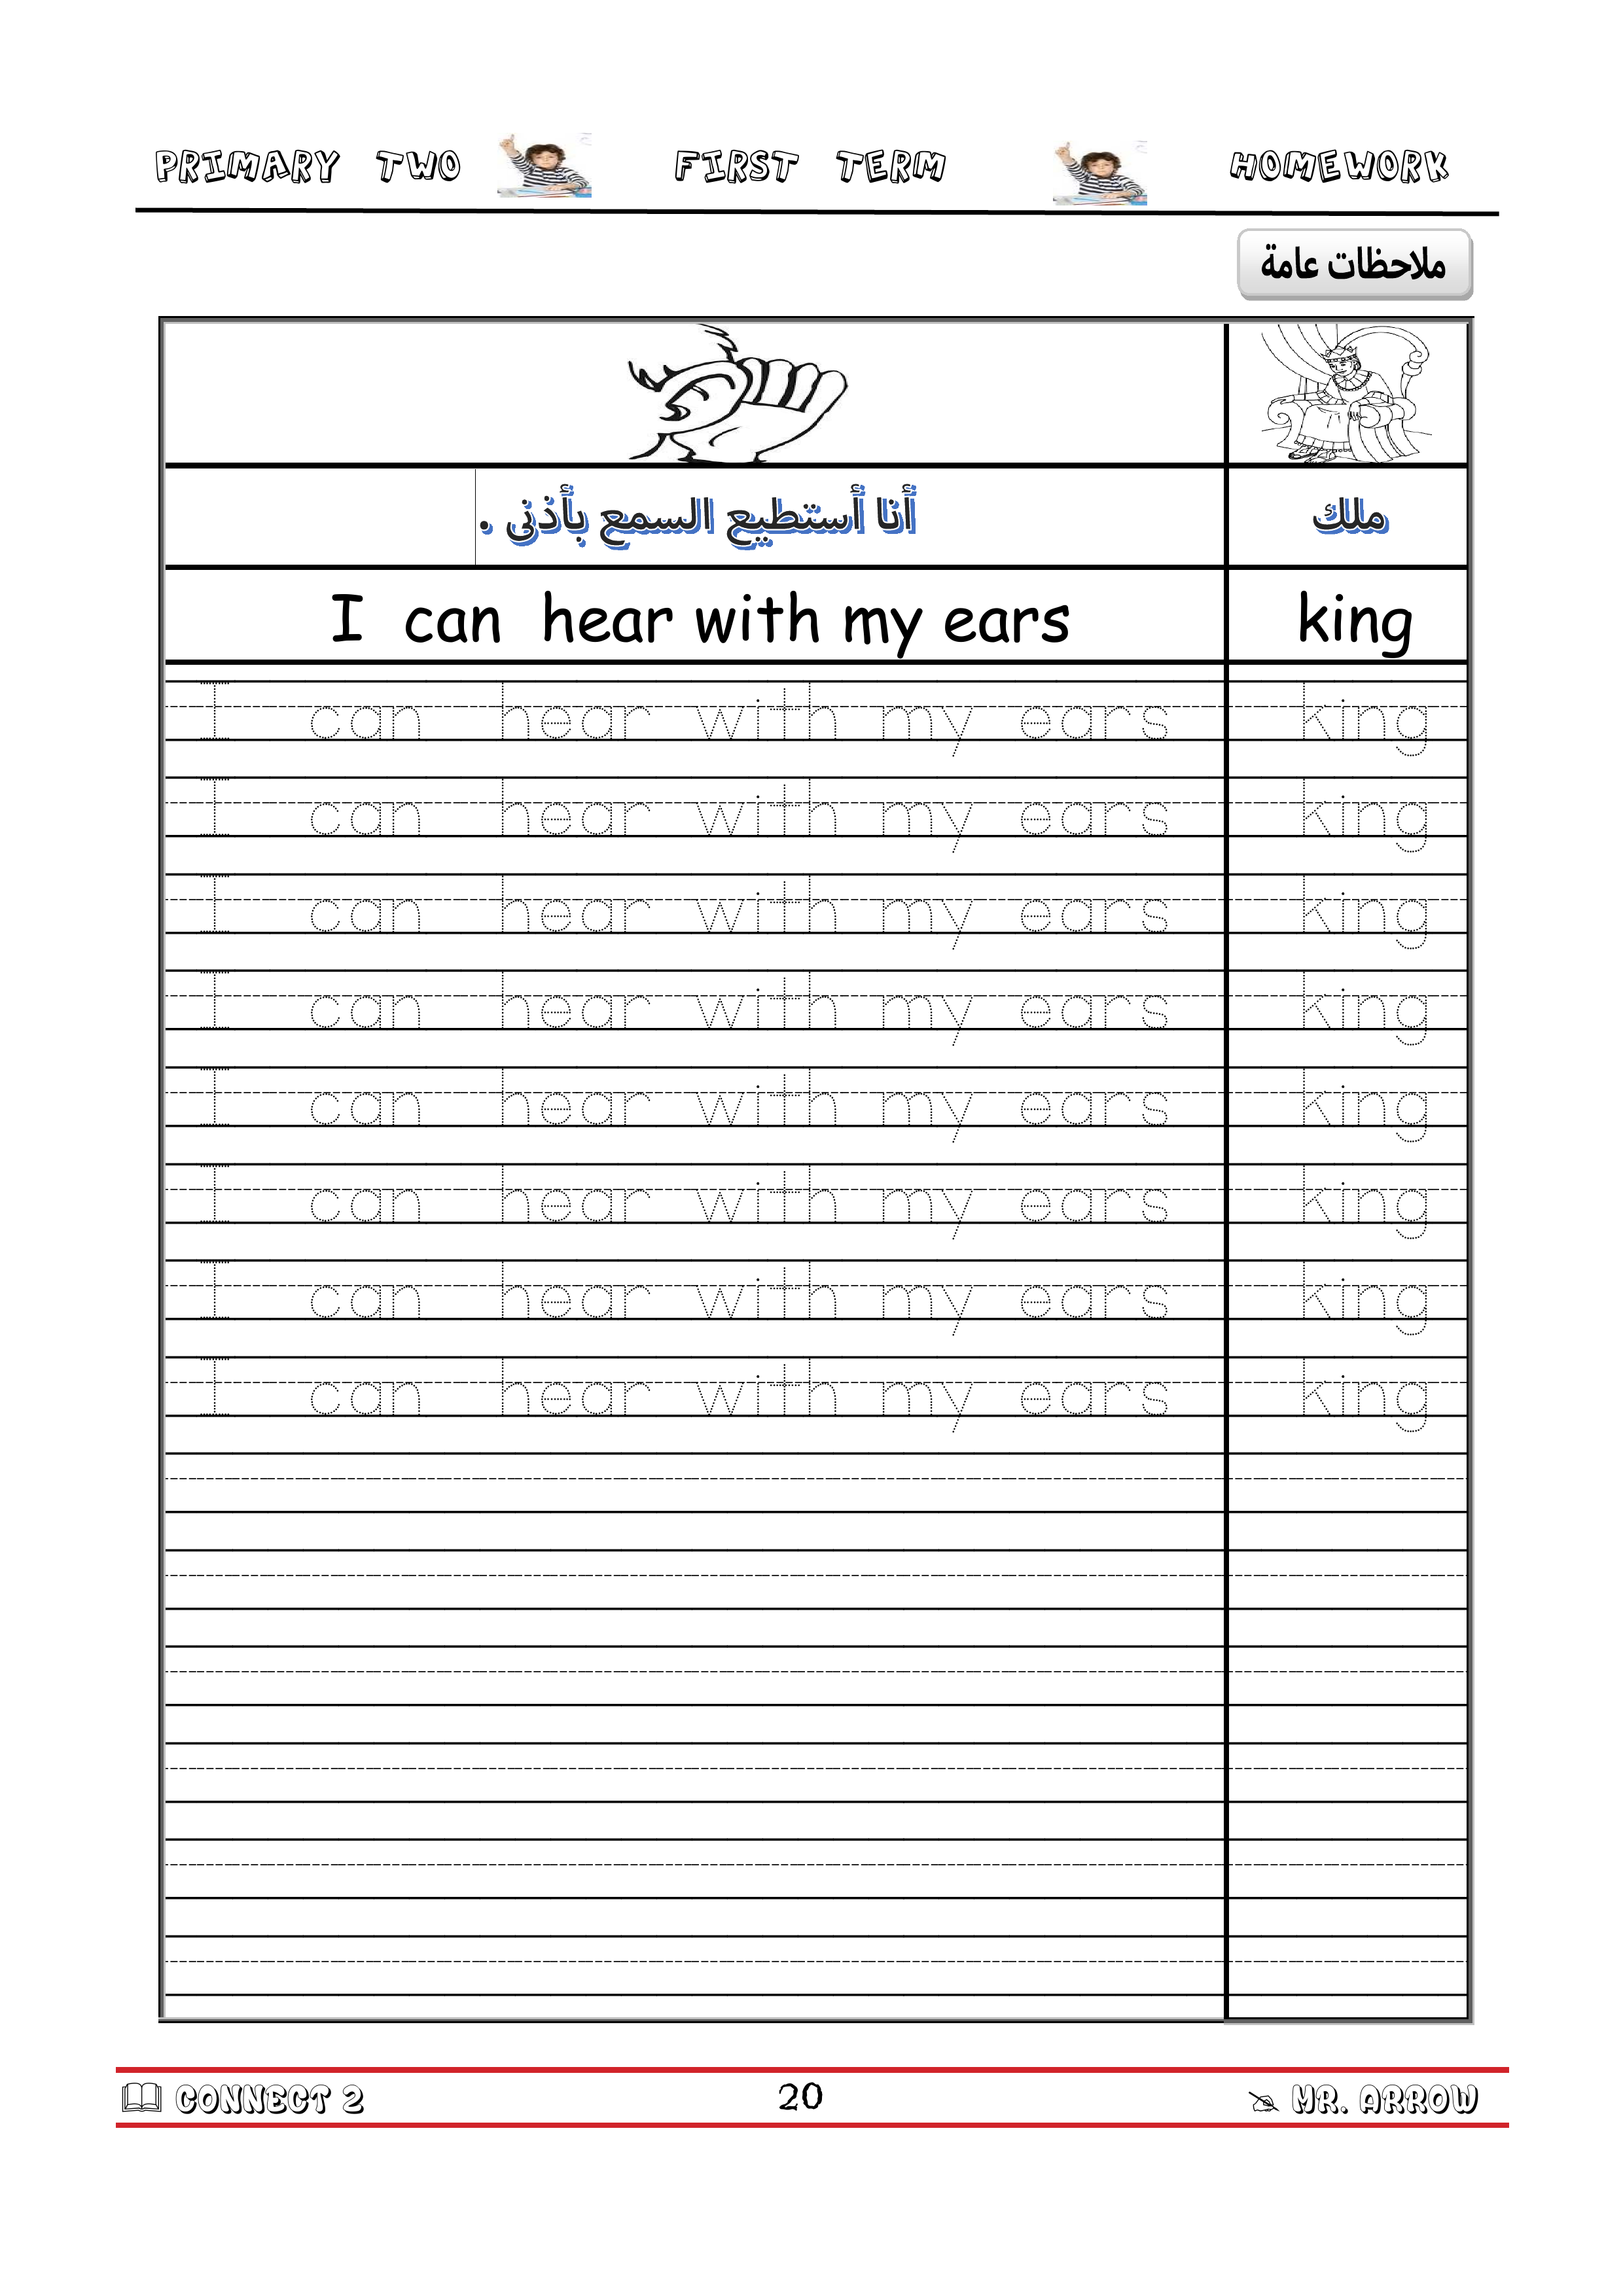 PRIMARY TWO FIRST TERM HOMEWORK
ملاحظات عامة
أنا أستطيع السمع بأذنى . ملك
I can hear with my ears king
I can hear with my ears king
I can hear with my ears king
I can hear with my ears king
I can hear with my ears king
I can hear with my ears king
I can hear with my ears king
I can hear with my ears king
I can hear with my ears king
CONNECT 2 20 MR. ARROW